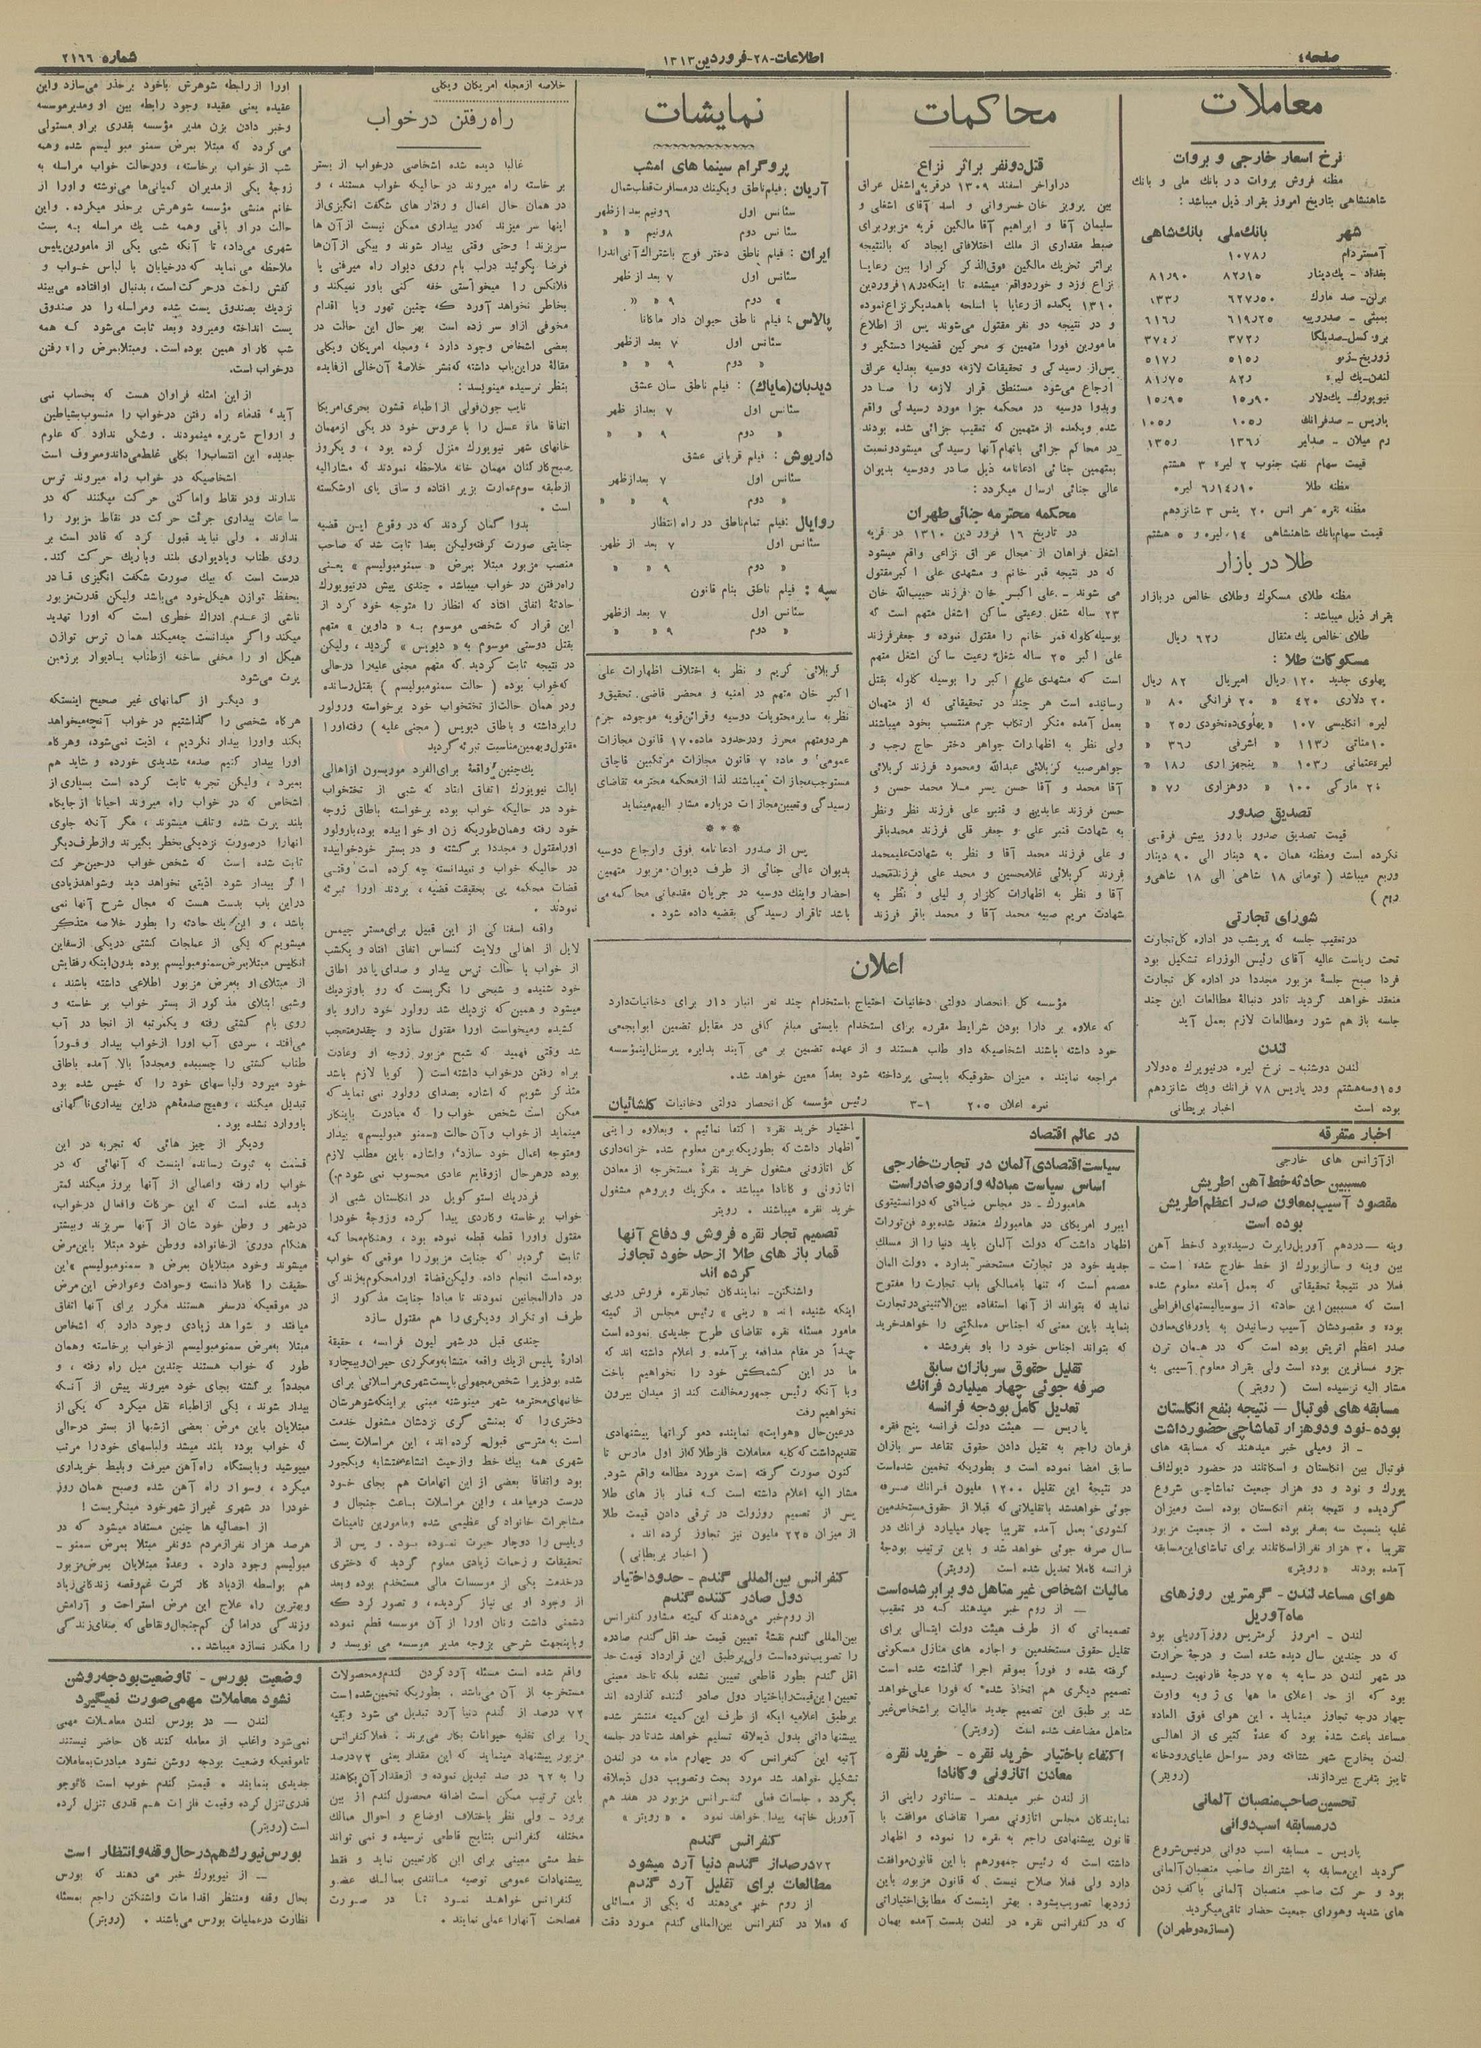 صفحه ٤
اطلاعات - ۲۸ - فروردین ۱۳۱۳
شماره ۲۱٦٦
معاملات
نرخ اسعار خارجی و بروات
مظنه فروش بروات در بانك ملی و بانك
شاهنشاهی بتاریخ امروز بقرار ذیل میباشد :
شهر بانك ملی بانك شاهی
قیمت سهام نفت جنوب ۲ لیره ۳ هشتم
مظنه طلا ٦٫١٤٫١٠ لیره
مظنه نقره هر انس ۲۰ پنس ۳ شانزدهم
قیمت سهام بانك شاهنشاهی ١٤٫ لیره و ٥ هشتم
طلا در بازار
مظنه طلای مسکوك وطلای خالص دربازار
بقرار ذیل میباشد :
طلای خالص یك مثقال ٦٢٫ ریال
مسکوکات طلا :
پهلوی جدید ۱۲۰ ریال امپریال ۸۲ ریال
۲۰ دلاری ٤٢٠ « ۲۰ فرانگی ۸۰ «
تصدیق صدور
قیمت تصدیق صدور با روز پیش فرقی
نکرده است ومظنه همان ۹۰ دینار الی ۹۰ دینار
شورای تجارتی
درتعقیب جلسه که پریشب در اداره کل تجارت
تحت ریاست عالیه آقای رئیس الوزراء تشکیل بود
فردا صبح جلسهٔ مزبور مجددا در اداره کل تجارت
منعقد خواهد گردید تادر دنبالهٔ مطالعات این چند
جلسه باز هم شور ومطالعات لازم بعمل آید
لندن
لندن دوشنبه - نرخ لیره درنیویرك ٥ دولار
و ١٥ وسه هشتم ودر پاریس ۷۸ فرانك ویك شانزدهم
بوده است اخبار بریطانی
محاکمات
قتل دونفر براثر نزاع
دراواخر اسفند ۱۳۰۹ درقریه اشغل عراق
بین پرویز خان خسروانی و اسد آقای اشغلی و
سلیمان آقا و ابراهیم آقا مالکین قریه مزبور برای
ضبط مقداری از ملك اختلافاتی ایجاد که بالنتیجه
براثر تحریك مالکین فوق الذکر کرارا بین رعایا
نزاع وزد و خوردواقع میشده تا اینکه در ۱۸ فروردین
۱۳۱۰ یکعده از رعایا با اسلحه باهمدیگر نزاع نموده
و در نتیجه دو نفر مقتول می‌شوند پس از اطلاع
مامورین فورا متهمین و محرکین قضیه را دستگیر و
پس از رسیدگی و تحقیقات لازمه دوسیه بعدلیه عراق
ارجاع می‌شود مستنطق قرار لازمه را صادر
وبدوا دوسیه در محکمه جزا مورد رسیدگی واقع
شده ویکعده از متهمین که تعقیب جزائی شده بودند
در محاکم جزائی باتهام آنها رسیدگی میشودونسبت
بمتهمین جنائی ادعانامه ذیل صادر ودوسیه بدیوان
عالی جنائی ارسال میگردد :
محکمه محترمه جنائی طهران
در تاریخ ١٦ فروردین ۱۳۱۰ در قریه
اشغل فراهان از محال عراق نزاعی واقع میشود
که در نتیجه قمر خانم و مشهدی علی اکبر مقتول
می شوند - علی اکبر خان فرزند حبیب‌الله خان
۲۳ ساله شغل رعیتی ساکن اشغل متهم است که
بوسیله گلوله قمر خانم را مقتول نموده و جعفر فرزند
علی اکبر ۲۵ ساله شغل رعیت ساکن اشغل متهم
است که مشهدی علی اکبر را بوسیله گلوله بقتل
رسانیده است هر چند در تحقیقاتی که از متهمان
بعمل آمده منکر ارتکاب جرم منتسب بخود میباشند
ولی نظر به اظهارات جواهر دختر حاج رجب و
جواهر صبیه کربلائی عبدالله ومحمود فرزند کربلائی
آقا محمد و آقا حسن پسر ملا محمد حسن و
آقا و نظر به اظهارات گلزار و لیلی و نظر به
شهادت مریم صبیه محمد آقا و محمد باقر فرزند
کربلائی کریم و نظر به اختلاف اظهارات علی
اکبر خان متهم در امنیه و محضر قاضی تحقیق و
نظر به سایر محتویات دوسیه وقرائن قویه موجوده جرم
هر دومتهم محرز ودرحدود ماده ۱۷۰ قانون مجازات
عمومی و ماده ۷ قانون مجازات مرتکبین قاچاق
مستوجب مجازات میباشند لذا ازمحکمه محترمه تقاضای
رسیدگی وتعیین مجازات درباره مشار الیهم مینماید
* * *
پس از صدور ادعانامه فوق وارجاع دوسیه
بدیوان عالی جنائی از طرف دیوان مزبور متهمین
احضار واینك دوسیه در جریان مقدماتی محاکمه می
باشد تاقرار رسیدگی بقضیه داده شود .
نمایشات
پروگرام سینما های امشب
آریان : فیلم ناطق ویکینك درمسافرت قطب شمال
سئانس اول ٦ ونیم بعد از ظهر
سئانس دوم ۸ ونیم « «
ایران : فیلم ناطق دختر فوج باشتراك آنی اندرا
سئانس اول ۷ بعد از ظهر
« دوم ۹ « «
پالاس : فیلم ناطق حیوان دار ماکانا
سئانس اول ۷ بعد ازظهر
« دوم ۹ « «
دیدبان (مایاك) : فیلم ناطق سان عشق
سئانس اول ۷ بعد از ظهر
« دوم ۹ « «
داریوش : فیلم قربانی عشق
سئانس اول ۷ بعد ازظهر
« دوم ۹ « «
روایال : فیلم تمام ناطق در راه انتظار
سئانس اول ۷ بعد از ظهر
« دوم ۹ « «
سپه : فیلم ناطق بنام قانون
سئانس اول ۷ بعد ازظهر
« دوم ۹ « «
اعلان
مؤسسه کل انحصار دولتی دخانیات احتیاج باستخدام چند نفر انبار دار برای دخانیات دارد
که علاوه بر دارا بودن شرایط مقرره برای استخدام بایستی مبلغ کافی در مقابل تضمین ابوابجمعی
خود داشته باشند اشخاصیکه داو طلب هستند و از عهده تضمین بر می آیند بدایره پرسنل اینمؤسسه
مراجعه نمایند . میزان حقوقیکه بایستی پرداخته شود بعداً معین خواهد شد .
نمره اعلان ۲۰۵ ۳-۱ رئیس مؤسسه کل انحصار دولتی دخانیات گلشائیان
خلاصه ازمجله امریکان ویکلی
راه رفتن درخواب
غالبا دیده شده اشخاصی درخواب از بستر
بر خاسته راه میروند در حالیکه خواب هستند ، و
در همان حال اعمال و رفتار های شگفت انگیزی از
اینها سر میزند که در بیداری ممکن نیست از آن ها
سربزند ! وحتی وقتی بیدار شوند و بیکی از آن‌ها
فرضا بگوئید درلب بام روی دیوار راه میرفتی یا
فلانکس را میخواستی خفه کنی باور نمیکند و
بخاطر نخواهد آورد که چنین تهور ویا اقدام
مخوفی ازاو سر زده است بهر حال این حالت در
بعضی اشخاص وجود دارد ، ومجله امریکان ویکلی
مقالهٔ دراین‌باب داشته که نشر خلاصهٔ آن خالی از فایده
بنظر نرسیده مینویسد :
نایب جون فولی از اطباء قشون بحری امریکا
اتفاقا ماه عسل را با عروس خود در یکی ازمهمان
خانه‌های شهر نیویورك منزل کرده بود ، و یکروز
صبح کارکنان مهمان خانه ملاحظه نمودند که مشارالیه
ازطبقه سوم عمارت بزیر افتاده و ساق پای اوشکسته
است .
بدوا گمان کردند که در وقوع این قضیه
جنایتی صورت گرفته ولیکن بعدا ثابت شد که صاحب
منصب مزبور مبتلا بمرض « سمنومبولیسم » یعنی
راه رفتن در خواب میباشد . چندی پیش درنیویورك
حادثهٔ اتفاق افتاد که انظار را متوجه خود کرد از
این قرار که شخصی موسوم به « داوین » متهم
بقتل دوستی موسوم به « دیویس » گردید ، ولیکن
در نتیجه ثابت گردید که متهم مجنی علیه را درحالی
که خواب بوده ( حالت سمنومبولیسم ) بقتل رسانده
ودر همان حالت از تختخواب خود برخواسته ورولور
رابرداشته و باطاق دیویس ( مجنی علیه ) رفته اورا
مقتول وبهمین مناسبت تبرئه گردید
یك چنین واقعهٔ برای الفرد موریسون ازاهالی
ایالت نیویورك اتفاق افتاد که شبی از تختخواب
خود در حالیکه خواب بوده برخواسته باطاق زوجه
خود رفته وهمان طوریکه زن او خوابیده بود، بارولور
اورا مقتول و مجددا برگشته و در بستر خود خوابیده
در حالیکه خواب و نمیدانسته چه کرده است وقتی
قضات محکمه پی بحقیقت قضیه ، بردند اورا تبرئه
نمودند .
واقعه اسفناکی از این قبیل برای مستر جیمس
لایل از اهالی ولایت کنساس اتفاق افتاد و یکشب
از خواب با حالت ترس بیدار و صدای پا در اطاق
خود شنیده و شبحی را نگریست که رو باونزدیك
میشود و همین که نزدیك شد رولور خود را رو باو
کشیده ومیخواست اورا مقتول سازد و چقدر متعجب
شد وقتی فهمید که شبح مزبور زوجه او وعادت
براه رفتن درخواب داشته است ( گویا لازم باشد
متذکر شویم که اشاره بصدای رولور نمی نماید که
ممکن است شخص خواب را که مبادرت باینکار
مینماید از خواب وآن حالت «سمنو مبولیسم» بیدار
ومتوجه اعمال خود سازد ، واشاره باین مطلب لازم
بوده درهرحال ازوقایع عادی محسوب نمی شودم.)
فردریك استو کویل در انگلستان شبی از
خواب برخاسته وکاردی پیدا کرده وزوجهٔ خودرا
مقتول واورا قطعه قطعه نموده بود ، وهنگام محاکمه
ثابت گردید که جنایت مزبور را موقعی که خواب
بوده است انجام داده ولیکن قضاة اورا محکوم به زندگی
در دارالمجانین نمودند تا مبادا جنایت مذکور از
طرف او تکرار ودیگری را هم مقتول سازد
چندی قبل درشهر لیون فرانسه ، حقیقة
ادارهٔ پلیس ازیك واقعه متشابه ومکرری حیران وبیچاره
شده بود زیرا شخص مجهولی باپست شهری مراسلاتی برای
خانمهای محترمه شهر مینوشته مبنی براینکه شوهرشان
دختری را که بمنشی گری نزدشان مشغول خدمت
است به مترسی قبول کرده اند ، این مراسلات پست
شهری همه بیك خط وازحیث انشاءهم متشابه وبکجور
بود واتفاقا بعضی از این اتهامات هم بجای خود
درست درمیامد ، واین مراسلات باعث جنجال و
مشاجرات خانوادگی عظیمی شده ومامورین تامینات
وپلیس را دوچار حیرت نموده بود . و پس از
تحقیقات و زحمات زیادی معلوم گردید که دختری
درخدمت یکی از موسسات مالی مستخدم بوده وبعد
از وجود او بی نیاز گردیده ، و تصور کرده که
دشمنی داشت ونان اورا از آن موسسه قطع نموده
وباینجهت شرحی بزوجه مدیر موسسه می نویسد و
اورا ازرابطه شوهرش باخود برحذر می‌سازد واین
عقیده یعنی عقیده وجود رابطه بین او ومدیرموسسه
وخبر دادن بزن مدیر مؤسسه بقدری براو مستولی
می گردد که مبتلا بمرض سمنو مبو لیسم شده وهمه
شب از خواب برخاسته ، ودرحالت خواب مراسله به
زوجهٔ یکی ازمدیران کمپانی‌ها می‌نوشته واورا از
خانم منشی مؤسسه شوهرش برحذر میکرده . واین
حالت دراو باقی وهمه شب یك مراسله به پست
شهری می‌داد، تا آنکه شبی یکی از مامورین پلیس
ملاحظه می نماید که درخیابان با لباس خواب و
کفش راحت درحرکت است، بدنبال اوافتاده می‌بیند
نزدیك بصندوق پست شده ومراسله را در صندوق
پست انداخته ومیرود وبعد ثابت می‌شود که همه
شب کار او همین بوده است . ومبتلا بمرض راه رفتن
درخواب است.
از این امثله فراوان هست که بحساب نمی
آید ، قدماء راه رفتن درخواب را منسوب بشیاطین
و ارواح شریره مینمودند . وشکی ندارد که علوم
جدیده این انتساب را بکلی غلط می‌داند ومعروف است
اشخاصیکه در خواب راه میروند ترس
ندارند ودر نقاط واماکنی حرکت میکنند که در
ساعات بیداری جرئت حرکت در نقاط مزبور را
ندارند . ولی نباید قبول کرد که قادر است بر
روی طناب ویادیواری بلند وباریك حرکت کند.
درست است که بیك صورت شگفت انگیزی قادر
بحفظ توازن هیکل خود می‌باشد ولیکن قدرت مزبور
ناشی از عدم ادراك خطری است که اورا تهدید
میکند واگر میدانست چه میکند همان ترس توازن
هیکل او را مخفی ساخته ازطناب یادیوار برزمین
پرت می‌شود
و دیگر از گمانهای غیر صحیح اینستکه
هرگاه شخصی را گذاشتیم در خواب آنچه میخواهد
بکند واورا بیدار نکردیم ، اذیت نمی‌شود، وهرگاه
اورا بیدار کنیم صدمه شدیدی خورده و شاید هم
بمیرد ، ولیکن تجربه ثابت کرده است بسیاری از
اشخاص که در خواب راه میروند احیانا ازجایگاه
بلند پرت شده وتلف میشوند ، مگر آنکه جلوی
آنهارا درصورت نزدیکی بخطر بگیرند وازطرف دیگر
ثابت شده است که شخص خواب درحین حرکت
اگر بیدار شود اذیتی نخواهد دید وشواهد زیادی
دراین باب بدست هست که مجال شرح آنها نمی
باشد ، و این یك حادثه را بطور خلاصه متذکر
میشویم که یکی از عملجات کشتی دریکی از سفاین
انگلیس مبتلا بمرض سمنومبولیسم بوده بدون اینکه رفقایش
از مبتلای او بمرض مزبور اطلاعی داشته باشند ،
وشبی ابتلای مذکور از بستر خواب بر خاسته و
روی بام کشتی رفته و یکمرتبه از انجا در آب
می‌افتد ، سردی آب اورا ازخواب بیدار و فوراً
طناب کشتی را چسبیده ومجدداً بالا آمده باطاق
خود میرود ولباسهای خود را که خیس شده بود
تبدیل میکند ، وهیچ صدمه هم دراین بیداری ناگهانی
باووارد نشده بود .
ودیگر از چیز هائی که تجربه در این
قسمت به ثبوت رسانده اینست که آنهائی که در
خواب راه رفته واعمالی از آنها بروز میکند کمتر
دیده شده است که این حرکات وافعال درخواب،
درشهر و وطن خود شان از آنها سربزند وبیشتر
هنگام دوری ازخانواده ووطن خود مبتلا باین مرض
میشوند وخود مبتلایان بمرض « سمنومبولیسم » این
حقیقت را کاملا دانسته وحوادث وعوارض این مرض
در موقعیکه درسفر هستند مکرر برای آنها اتفاق
میافتد و شواهد زیادی وجود دارد که اشخاص
مبتلا به مرض سمنومبولیسم ازخواب برخاسته وهمان
طور که خواب هستند چندین میل راه رفته ، و
مجدداً برگشته بجای خود میروند پیش از آنکه
بیدار شوند ، یکی ازاطباء نقل میکرد که یکی از
مبتلایان باین مرض بعضی ازشبها از بستر درحالی
که خواب بوده بلند میشد ولباسهای خودرا مرتب
میپوشید وبایستگاه راه‌آهن میرفت وبلیط خریداری
میکرد ، وسوار راه آهن شده وصبح همان روز
خودرا در شهری غیراز شهر خود مینگریست !
از احصائیه ها چنین مستفاد میشود که در
هرصد هزار نفرازمردم دونفر مبتلا بمرض سمنو -
مبولیسم وجود دارد . وعدهٔ مبتلایان بمرض مزبور
هم بواسطه ازدیاد کار کثرت غم وغصه زندگانی زیاد
وبهترین راه علاج این مرض استراحت و آرامش
وزندگی دراماکن کم جنجال ونقاطی که صفای زندگی
را مکدر نسازد میباشد ..
اخبار متفرقه
ازآژانس های خارجی
مسببین حادثه خط آهن اطریش
مقصود آسیب بمعاون صدر اعظم اطریش
بوده است
وینه - دردهم آوریل راپرت رسیده بود که خط آهن
بین وینه و سالزبورك از خط خارج شده است -
فعلا در نتیجه تحقیقاتی که بعمل آمده معلوم شده
است که مسببین این حادثه از سوسیالیستهای افراطی
بوده و مقصودشان آسیب رسانیدن به یاورفای معاون
صدر اعظم اتریش بوده است که در همان ترن
جزو مسافرین بوده است ولی بقرار معلوم آسیبی به
مشار الیه نرسیده است ( رویتر )
مسابقه های فوتبال - نتیجه بنفع انگلستان
بوده - نود و دوهزار تماشاچی حضورداشت
- از ومبلی خبر میدهند که مسابقه های
فوتبال بین انگلستان و اسکاتلند در حضور دیوك‌اف
یورك و نود و دو هزار جمعیت تماشاچی شروع
گردیده و نتیجه بنفع انگلستان بوده است ومیزان
غلبه بنسبت سه بصفر بوده است . از جمعیت مزبور
تقریبا ۳۰ هزار نفرازاسکاتلند برای تماشای این مسابقه
آمده بودند « رویتر »
هوای مساعد لندن - گرمترین روزهای
ماه آوریل
لندن - امروز گرمترین روز آوریلی بود
که در چندین سال دیده شده است و درجهٔ حرارت
در شهر لندن در سایه به ۷٥ درجهٔ فارنهیت رسیده
چهار درجه تجاوز مینماید . این هوای فوق العاده
مساعد باعث شده بود که عدهٔ کثیری از اهالی
لندن بخارج شهر شتافته ودر سواحل علیای رودخانه
تایمز بتفرج بپردازند. (رویتر)
تحسین صاحب منصبان آلمانی
درمسابقه اسب دوانی
پاریس - مسابقه اسب دوانی درنیس شروع
گردید این مسابقه به اشتراك صاحب منصبان آلمانی
بود و حرکت صاحب منصبان آلمانی باکف زدن
های شدید وهورای جمعیت حضار تلقی میگردید
در عالم اقتصاد
سیاست اقتصادی آلمان در تجارت خارجی
اساس سیاست مبادله واردو صادراست
هامبورك - در مجلس ضیافتی که درانستیتوی
ایبرو امریکای در هامبورك منعقد شده بود فن نورات
اظهار داشت که دولت آلمان باید دنیا را از مسلك
جدید خود در تجارت مستحضر بدارد . دولت المان
مصمم است که تنها باممالکی باب تجارت را مفتوح
نماید که بتواند از آنها استفاده بین‌الاثنینی درتجارت
بنماید باین معنی که اجناس مملکتی را خواهد خرید
که بتواند اجناس خود را باو بفروشد .
تقلیل حقوق سربازان سابق
صرفه جوئی چهار میلیارد فرانك
تعدیل کامل بودجه فرانسه
پاریس - هیئت دولت فرانسه پنج فقره
فرمان راجع به تقیل دادن حقوق تقاعد سر بازان
سابق امضا نموده است و بطوریکه تخمین شده است
در نتیجهٔ این تقلیل ۱۲۰۰ ملیون فرانك صرفه
جوئی خواهد شد باتقلیلاتی که قبلا از حقوق مستخدمین
کشوری بعمل آمده تقریبا چهار میلیارد فرانك در
سال صرفه جوئی خواهد شد و باین ترتیب بودجهٔ
فرانسه کاملا تعدیل شده است (رویتر)
مالیات اشخاص غیر متاهل دو برابر شده است
- از روم خبر میدهند که در تعقیب
تصمیماتی که از طرف هیئت دولت ایتالی برای
تقلیل حقوق مستخدمین و اجاره های منازل مسکونی
گرفته شده و فوراً بموقع اجرا گذاشته شده است
تصمیم دیگری هم اتخاذ شده که فورا عملی خواهد
شد بر طبق این تصمیم جدید مالیات براشخاص غیر
متاهل مضاعف شده است (رویتر)
اکتفاء باختیار خرید نقره - خرید نقره
معادن اتازونی وکانادا
از لندن خبر میدهند - سناتور راینی از
نمایندگان مجلس اتازونی مصرا تقاضای موافقت با
قانون پیشنهادی راجع به نقره را نموده و اظهار
داشته است که رئیس جمهور هم با این قانون موافقت
دارد ولی فعلا صلاح نیست که قانون مزبور باین
زودیها تصویب بشود . بهتر اینست که مطابق اختیاراتی
که درکنفرانس نقره در لندن بدست آمده بهمان
اختیار خرید نقره اکتفا نمائیم . وبعلاوه راینی
اظهار داشت که بطوریکه برمن معلوم شده خزانه‌داری
کل اتازونی مشغول خرید نقرهٔ مستخرجه از معادن
اتازونی و کانادا میباشد . مکزیك و پروهم مشغول
خرید نقره میباشند . رویتر
تصمیم تجار نقره فروش و دفاع آنها
قمار باز های طلا ازحد خود تجاوز
کرده اند
واشنگتن - نمایندگان تجارنقره فروش درپی
اینکه شنیده اند « رینی » رئیس مجلس از کمیته
مامور مسئله نقره تقاضای طرح جدیدی نموده است
جداً در مقام مدافعه بر آمده و اعلام داشته اند که
ما در این کشمکش خود را نخواهیم باخت
وبا آنکه رئیس جمهورمخالفت کند از میدان بیرون
نخواهیم رفت
درعین حال «هوایت» نماینده دمو کراتها پیشنهادی
تقدیم داشت که کلیه معاملات فلزطلا که از اول مارس تا
کنون صورت گرفته است مورد مطالعه واقع شود.
مشار الیه اعلام داشته است که قمار باز های طلا
پس از تصمیم روزولت در ترقی دادن قیمت طلا
از میزان ۲۲۵ ملیون نیز تجاوز کرده اند .
( اخبار بریطانی )
کنفرانس بین‌المللی گندم - حدود اختیار
دول صادر کننده گندم
از روم خبر می‌دهند که کمیته مشاور کنفرانس
بین‌المللی گندم نقشهٔ تعیین قیمت حد اقل گندم صادره
را تصویب نموده است ولی برطبق این قرارداد قیمت حد
اقل گندم بطور قاطعی تعیین نشده بلکه تاحد معینی
تعیین این قیمت را باختیار دول صادر کننده گذارده اند
برطبق اعلامیه ایکه از طرف این کمیته منتشر شده
پیشنهاداتی بدول ذیعلاقه تسلیم خواهد شد تا در جلسه
آتیه این کنفرانس که در چهارم ماه مه در لندن
تشکیل خواهد شد مورد بحث وتصویب دول ذیعلاقه
بگردد . جلسات فعلی کنفرانس مزبور در هفدهم
آوریل خاتمه پیدا خواهد نمود . « رویتر »
کنفرانس گندم
۷۲ درصد از گندم دنیا آرد میشود
مطالعات برای تقلیل آرد گندم
از روم خبر می‌دهند که یکی از مسائلی
که فعلا در کنفرانس بین‌المللی گندم مورد دقت
واقع شده است مسئله آرد کردن گندم ومحصولات
مستخرجه از آن می‌باشد . بطوریکه تخمین شده است
۷۲ درصد از گندم دنیا آرد تبدیل می شود وبقیه
را برای تغذیه حیوانات بکار می‌برند . فعلا کنفرانس
مزبور پیشنهاد مینماید که این مقدار یعنی ۷۲ درصد
را به ٦٢ در صد تبدیل نموده و ازمقدار آن بکاهند
باین ترتیب ممکن است اضافه محصول گندم از بین
برود - ولی نظر باختلاف اوضاع و احوال ممالك
مختلفه کنفرانس بنتایج قاطعی نرسیده و نمی تواند
خط مشی معینی برای این کارتعیین نماید و فقط
پیشنهادات عمومی توصیه مانندی بممالك عضو
کنفرانس خواهد نمود تا در صورت
مصلحت آنهارا عملی نمایند .
وضعیت بورس - تاوضعیت بودجه روشن
نشود معاملات مهمی صورت نمیگیرد
لندن - در بورس لندن معاملات مهمی
نمی‌شود واغلب از معامله کنندگان حاضر نیستند
تاموقعیکه وضعیت بودجه روشن نشود مبادرت بمعاملات
جدیدی بنمایند . قیمت گندم خوب است کائوچو
قدری تنزل کرده وقیمت فلزات هم قدری تنزل کرده
است (رویتر)
بورس نیورك هم درحال وقفه وانتظار است
- از نیویورك خبر می دهند که بورس
بحال وقفه ومنتظر اقدامات واشنگتن راجع بمسئله
نظارت درعملیات بورس می‌باشند . (رویتر)